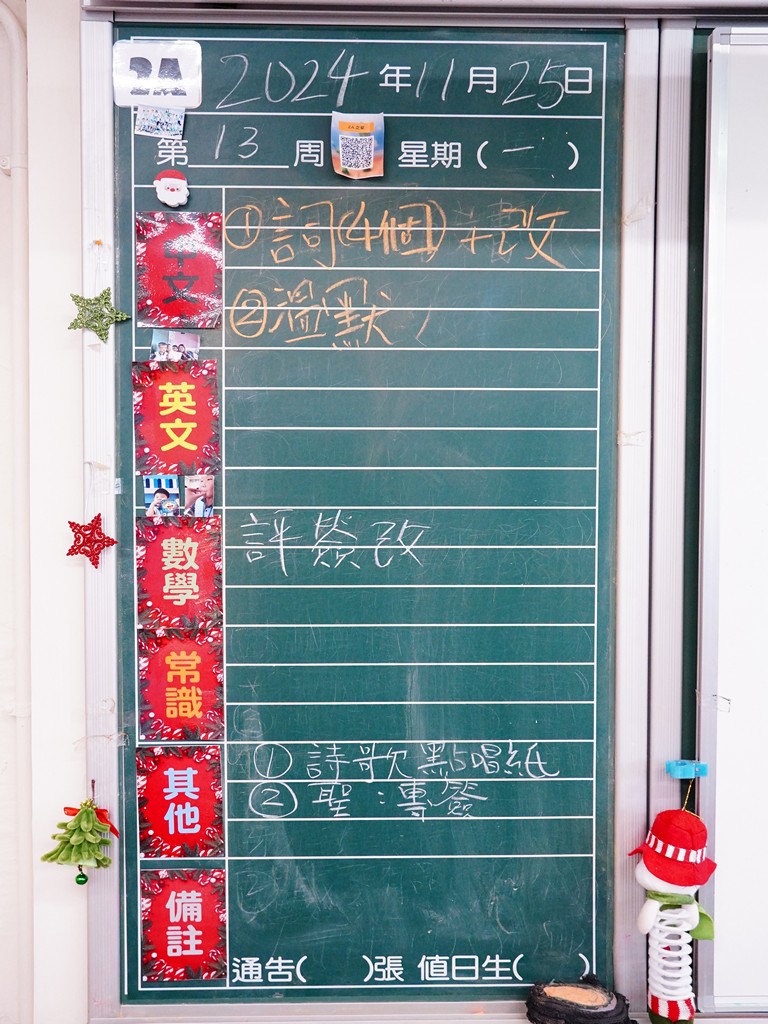 2A
2024年11月25日
第13周 星期(一)
中文
①詞(4個)+改
②溫默
英文
數學
評簽改
常識
其他
①詩歌點唱紙
②聖:專簽
備註
通告( )張 值日生( )